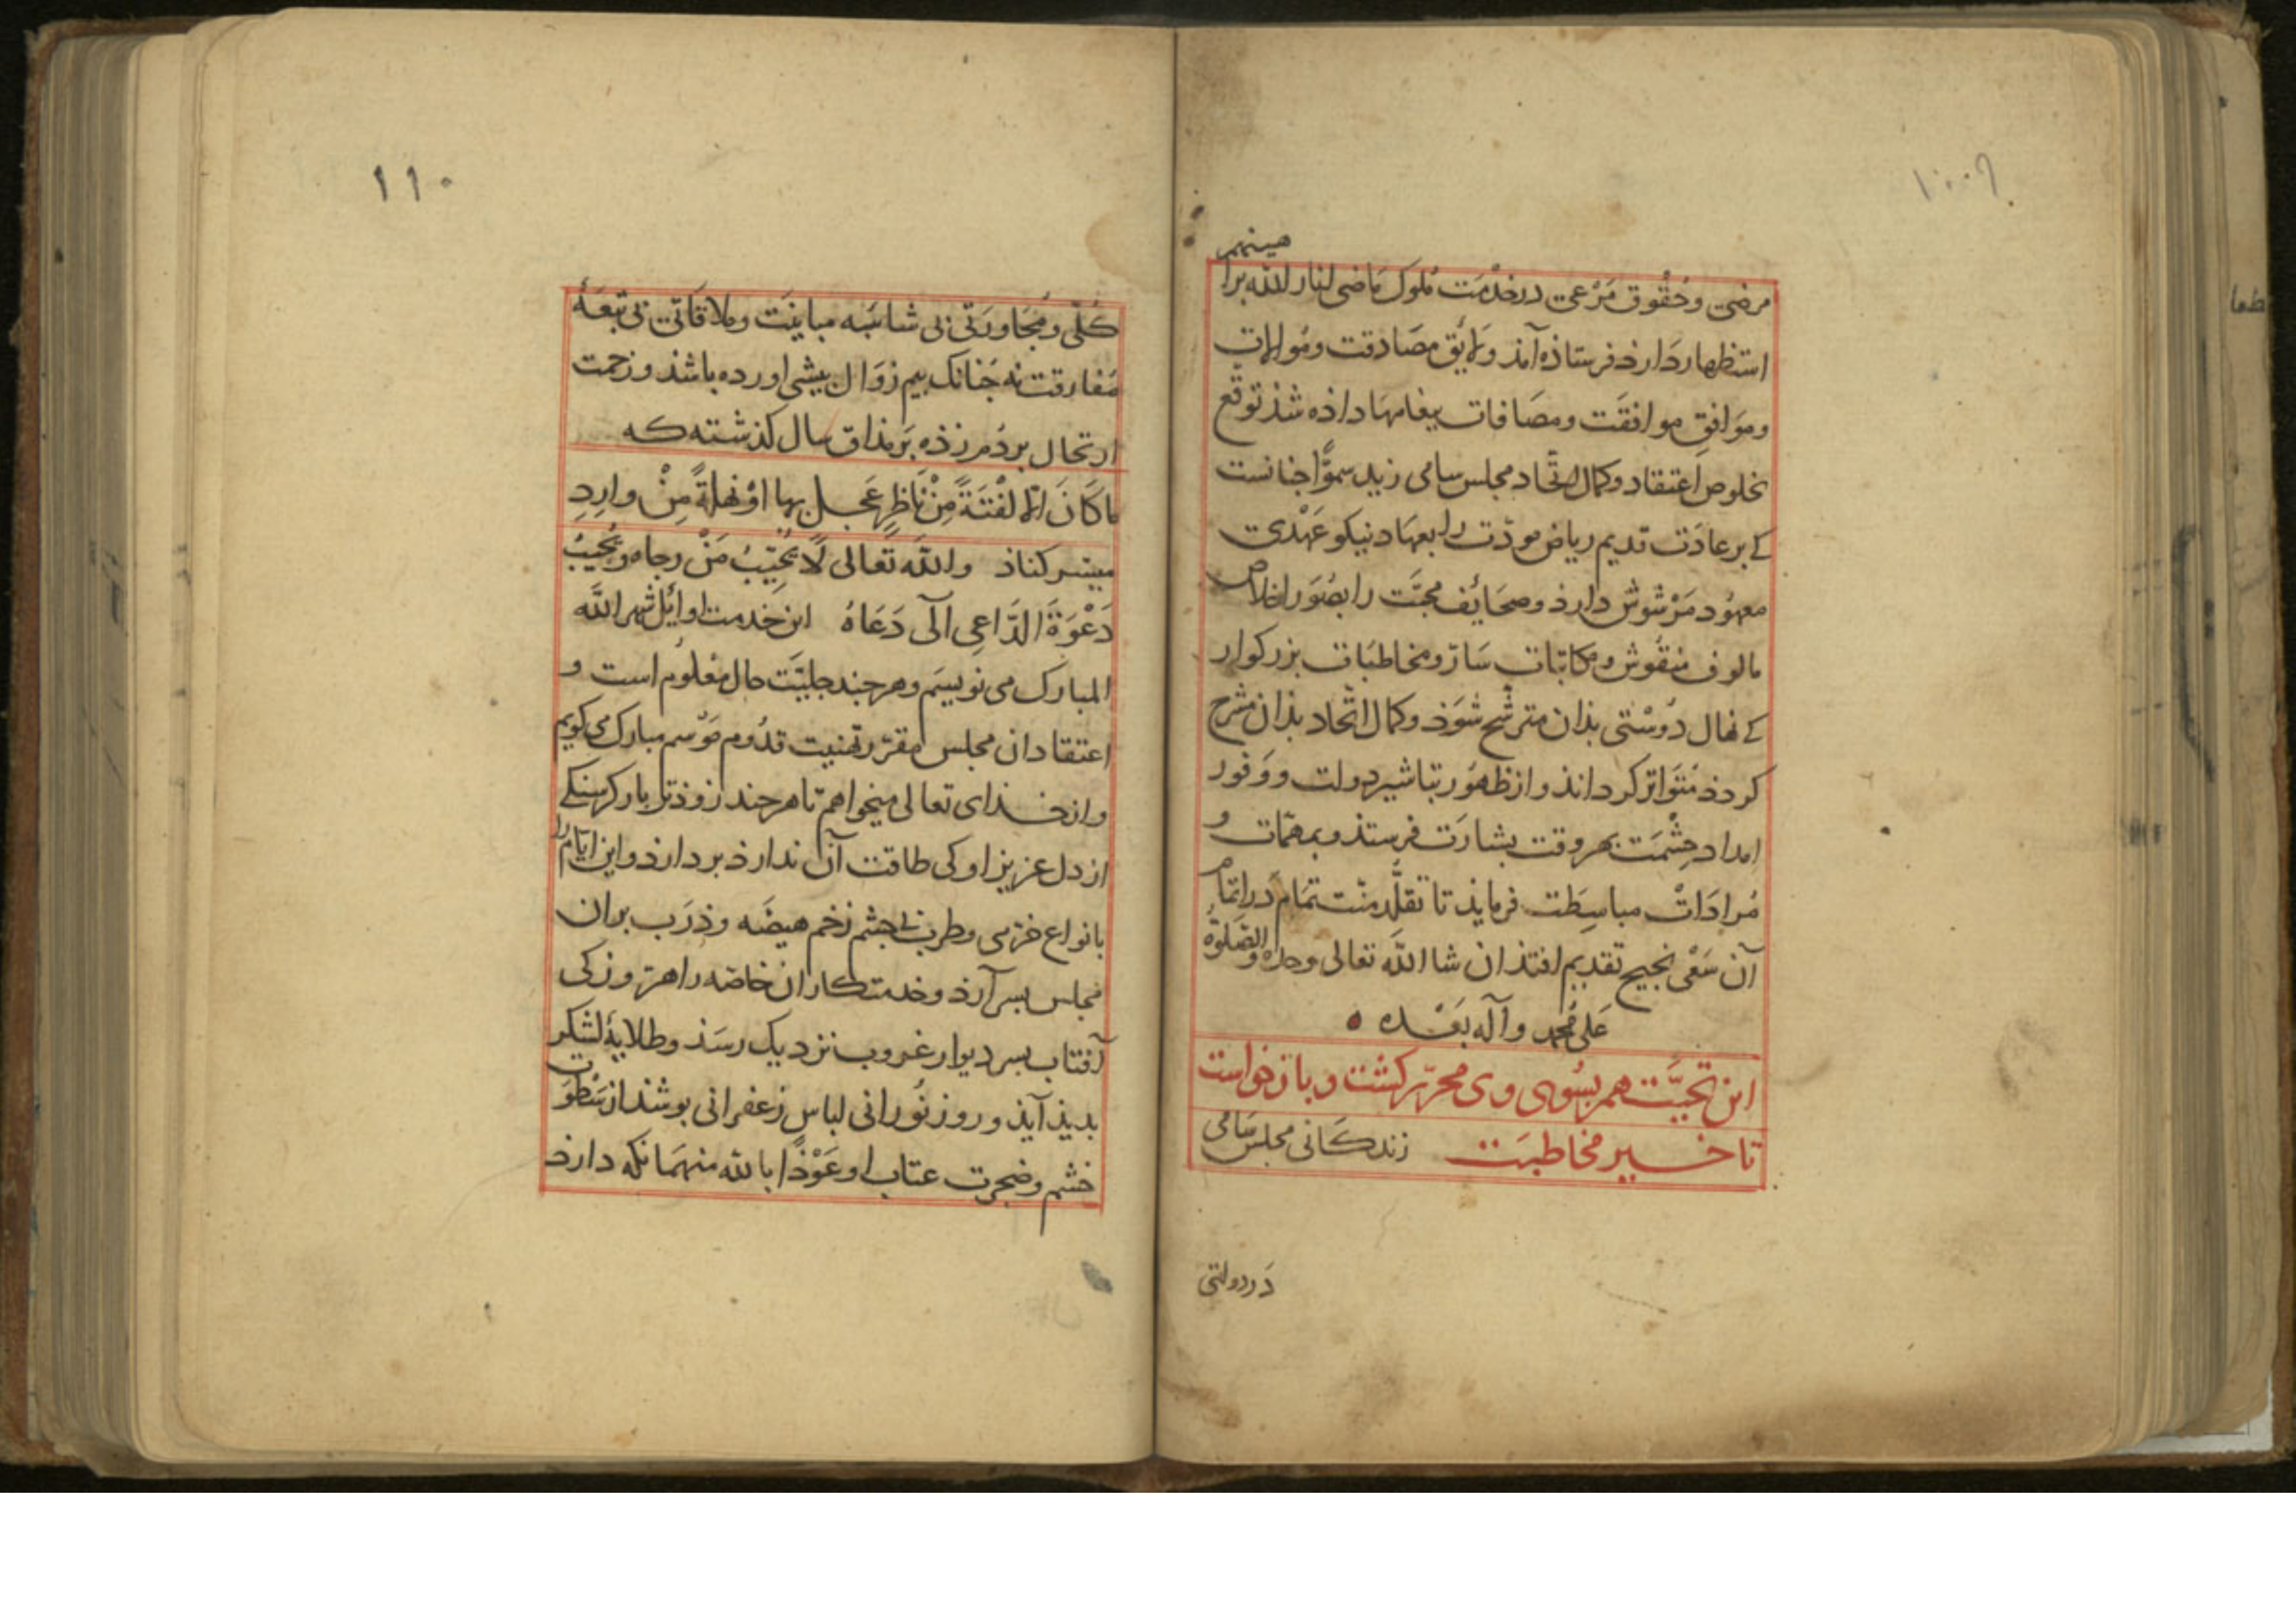 هینهم
مرضی و حُقُوق مَرْعی در خذْمَت مُلوک مَاضی انار الله برا
استظهار دَارذ فرستاذه آمذ و لایُق مصَادقت و مُوالات
و موَافقِ موافقَت و مصَافات پیغامهَا داذه شذ توقّع
بخلوص اعتقاد و کمال اتّحاد مجلس سامی زید سموًّا جنانست
کے بر عادَت قدیم ریاض مودّت را بعهَاد نیکو عَهْدی
معهُود مَرْشُوش دارذ و صحَائِف محبّت را بصُوَر اخلاص
مالوف منقُوش و مکاتبات سَارّ و مخاطبَات بزرکوار
کے نهال دُوسْتی بذان مترشّح شوَذ و کمال اتّحاد بذان مشرح
کردذ مُتَوَاتر کرداند و از ظهوُر تباشیر دولت و وَفور
امداد حِشْمَت بهر وقت بشارَت فرستذ و بمهمّات و
مُرادَاتْ مباسَطت فرمایذ تا تقلّد منّت تمَام دَر اتمام
آن سَعْی نجیح تقدیم افتذ ان شا الله تعالی وحده و الصَّلوةُ
عَلی مُحمد و آله بَعْده
این تحیَّت هم بسُوی وی محرّر کشت و باز خواست
تا خیر مخاطبَت زندکَانی مجلس سَامی
دَر دولتی
۱۱۰
کُلّی و مُجَاورَتی بی شائبَه مباینَت و ملاقَاتی بی تبعَهٔ
مفَارقت نه جَنانک بیم زوَال پیشی اورده باشذ و زحمت
ارتحال بر دُم زذه بَر مذاق سال کذشته که
مَا کَانَ الّا لَفْتَةً مِنْ نَاظِرٍ عَجِل بها اوْ نهلةً مِنْ وارِدِ
میسر کناذ والله تَعالی لَا یُخَیّبُ مَنْ رجاه و یُجیبُ
دَعْوَةَ الدَّاعی اِلَی دَعَاهُ این خدمت اوائل شهر الله
المبارک می نویسَم و هر جند جلیّت حال مَعْلوُم است و
اعتقاد ان مجلس مقرّر تهنیت قدُوم مَوْسم مبارک می کویم
و از خذای تعالی میخواهم تا هر جند زوذتر بار کرسنکے
از دل عزیز او کی طاقت آن ندارذ بردارذ و این ایّام را
بانواع خرّمی و طرب بے جشم زخم هیضَه و ذَرَب بر ان
مجلس بسر آرذ و خدمتکاران خاصّه را هر روز کی
آفتاب بسر دیوار غروب نزدیک رسَذ و طلایهٔ لشکر
بدیذ آیذ و روز نُورانی لباس زعفرانی بوشذ از سَطْوَت
خشم و ضجرت عتاب او عَوْذًا بالله منهمَا نکه دارذ